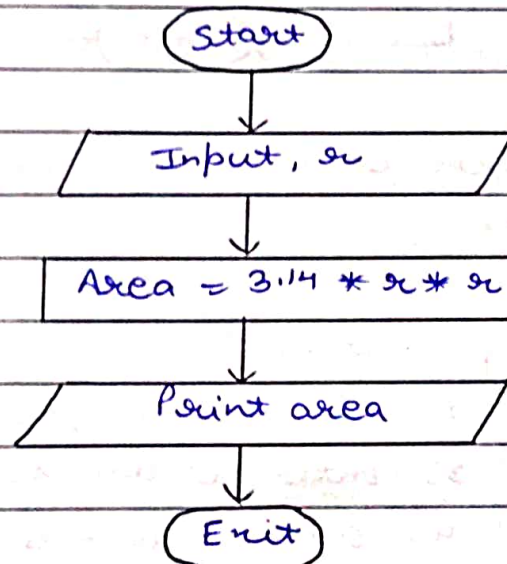 Start
Input, r
Area = 3.14 * r * r
Print area
Exit